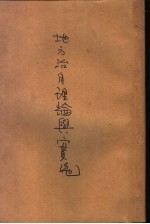 地方治自理論與實施